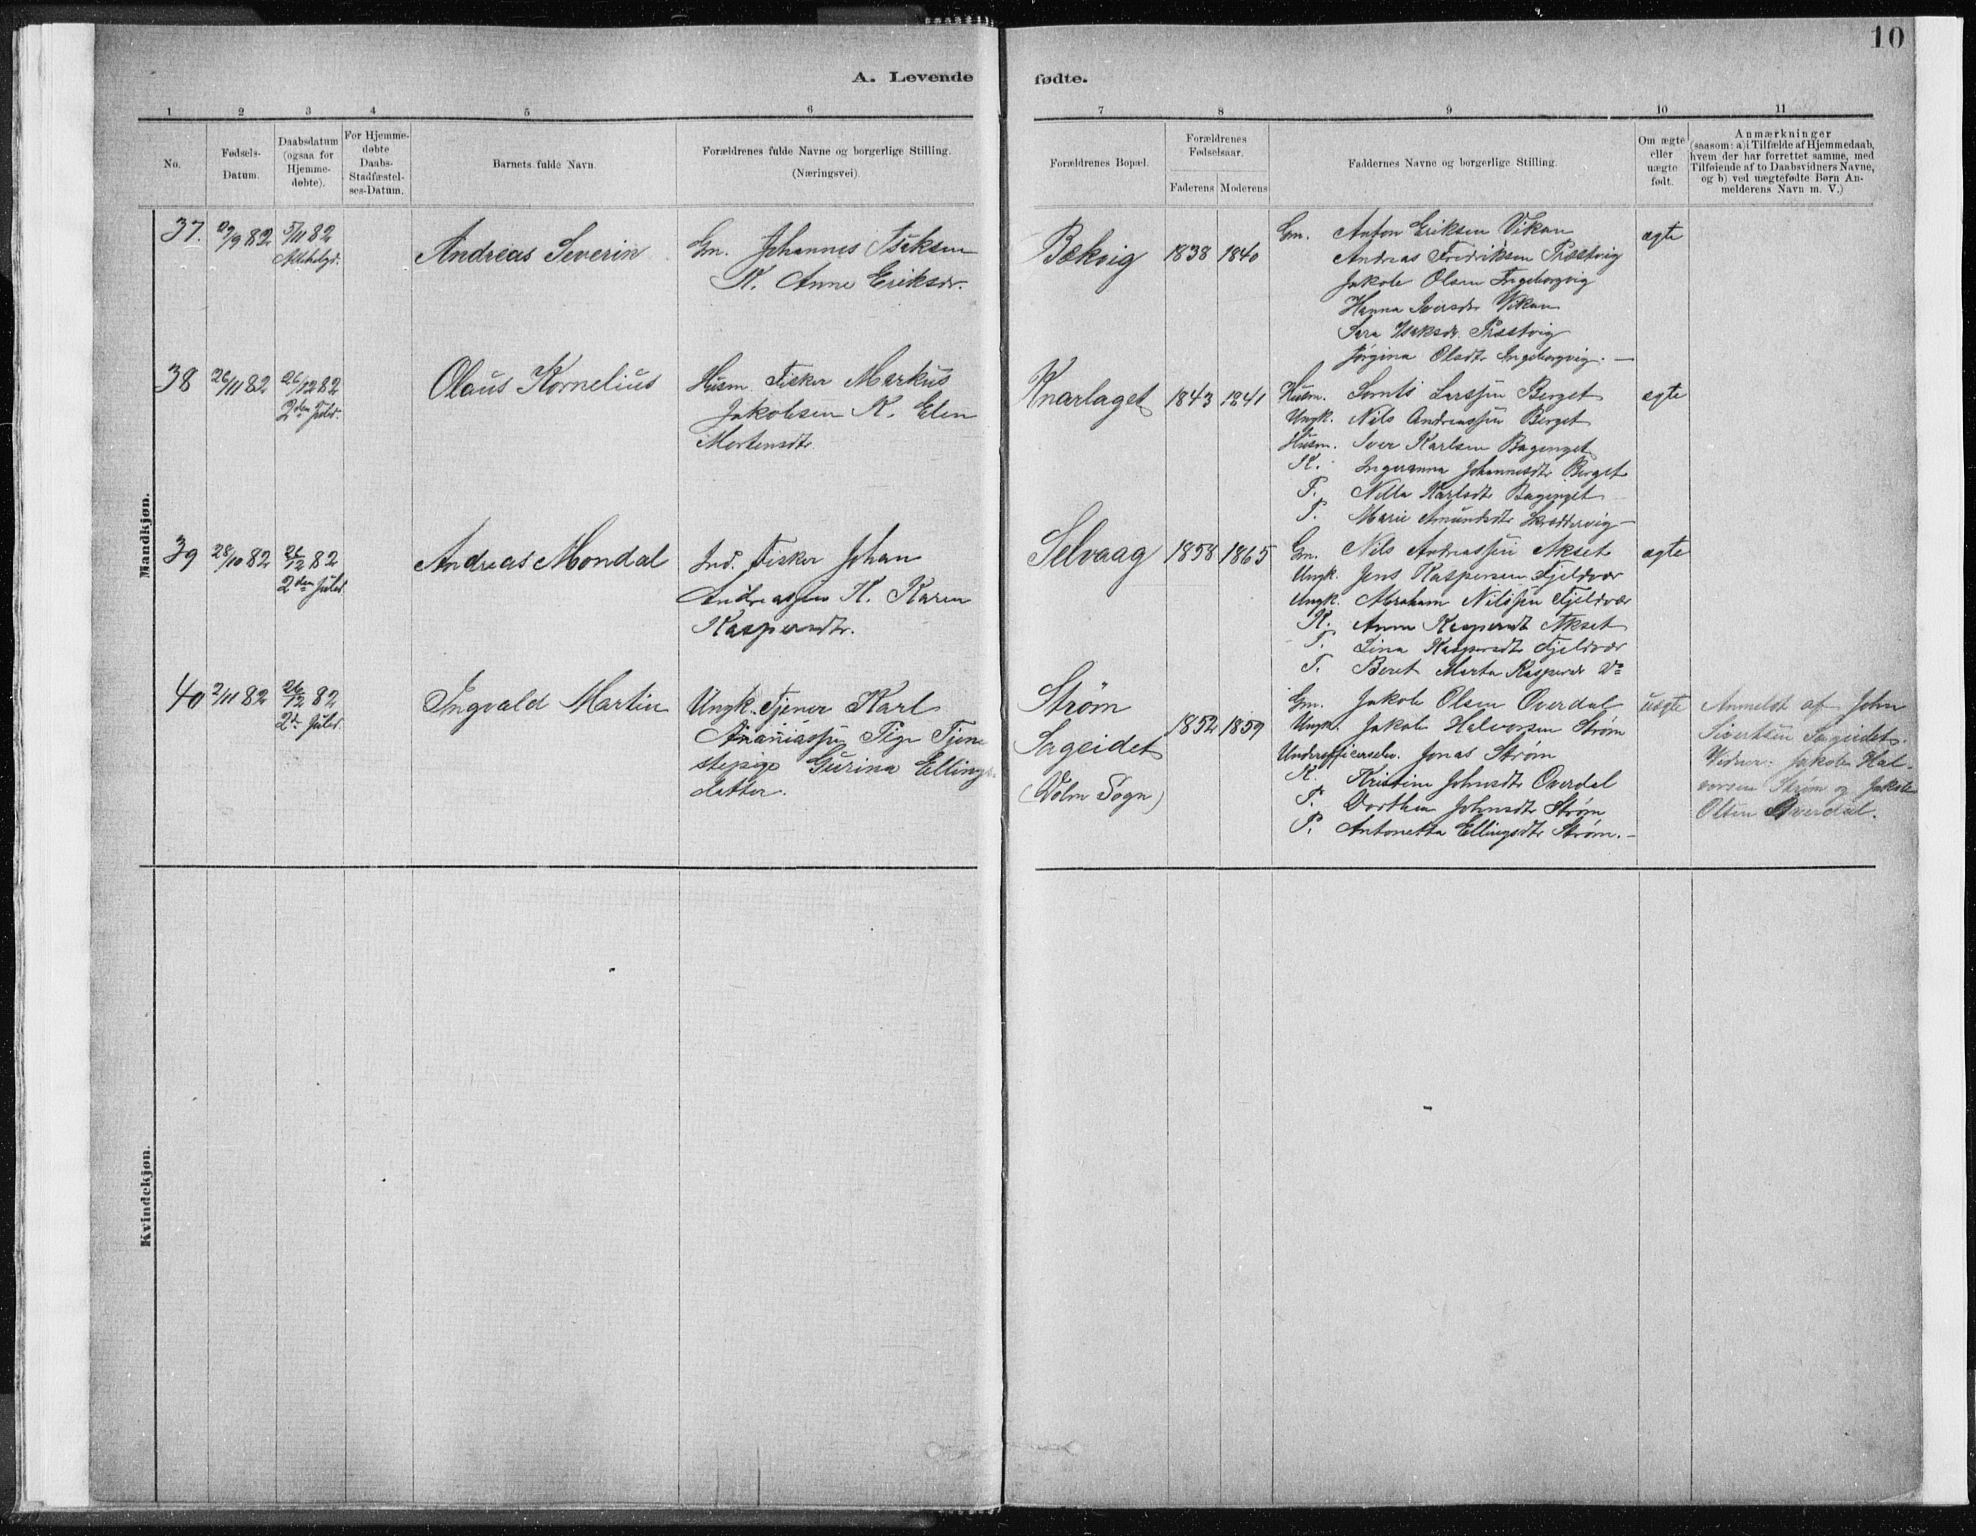 10
A. Levende fødte.
1 2 3 4 5 6 7 8 9 10 11
No.
Fødsels-
Datum.
Daabsdatum
(ogsaa for
Hjemme-
døbte).
For Hjemme-
døbte
Daabs-
Stadfæstel-
ses-Datum.
Barnets fulde Navn.
Forældrenes fulde Navne og borgerlige Stilling.
(Næringsvei).
Forældrenes Bopæl.
Forældrenes
Fødselsaar.
Faderens Moderens
Faddernes Navne og borgerlige Stilling.
Om ægte
eller
uægte
født.
Anmærkninger
(saasom: a) i Tilfælde af Hjemmedaab,
hvem der har forrettet samme, med
Tilføiende af to Daabsvidners Navne,
og b) ved uægtefødte Børn An-
melderens Navn m. V.)
Mandkjøn.
37. 82 5/11 82
Andreas Severin
Gm. Johannes
K. Anne Eriksdr.
Bækvig 1838 1840
Gm. Anton Eriksen Vikan
Andreas Fredriksen Præstvig
Jakob Olsen Ingeborgvig
Hanna Iversdr Vikan
Sara Isaksdr Præstvig
Jørgina Olsdtr Ingeborgvig. —
ægte
38 26/11 82 26/12 82
2den Juled.
Olaus Kornelius
Husm. Fisker Markus
Jakobsen K. Elen
Mortensdtr.
Knarlaget 1843 1841
Husm. Larssen Berget
Ungk. Nils Andreassen Berget
Husm. Iver Karlsen Bagenget
K. Ingeranna Johannesdtr Berget
P. Nella Karlsdtr Bagenget
P. Marie Amundsdtr —
ægte
39 28/10 82 26/12 82
2den Juled
Andreas Mondal
Ind. Fisker Johan
Andreassen K. Karen
Kaspersdtr.
Selvaag 1858 1865
Gm. Nils Andreassen Akset
Ungk. Jens Kaspersen Fjeldvær
Ungk. Abraham Nilssen Fjeldvær
K. Anna Kaspersdt Akset
P. Lina Kaspersdtr Fjeldvær
P. Beret Marta Kaspersdr Do
ægte
40 2/11 82 26/12 82
2d. Juled.
Ingvald Martin
Ungk. Tjener Karl
Ananiassen Pige Tjene
stepige Gurina Ellings
datter.
Strøm
Sageidet
(Volm Sogn)
1852 1859
Gm. Jakob Olsen Overdal
Ungk. Jakob Halvorsen Strøm
Jonas Strøm
K. Kristine Johnsdtr Overdal
P. Dorthea Johnsdtr Strøm
P. Antonetta Ellingsdtr Strøm. —
uægte
Anmeldt af John
Sivertsen Sageidet.
Vidner: Jakob Hal-
vorsen Strøm og Jakob
Olsen Overdal.
Kvindekjøn.